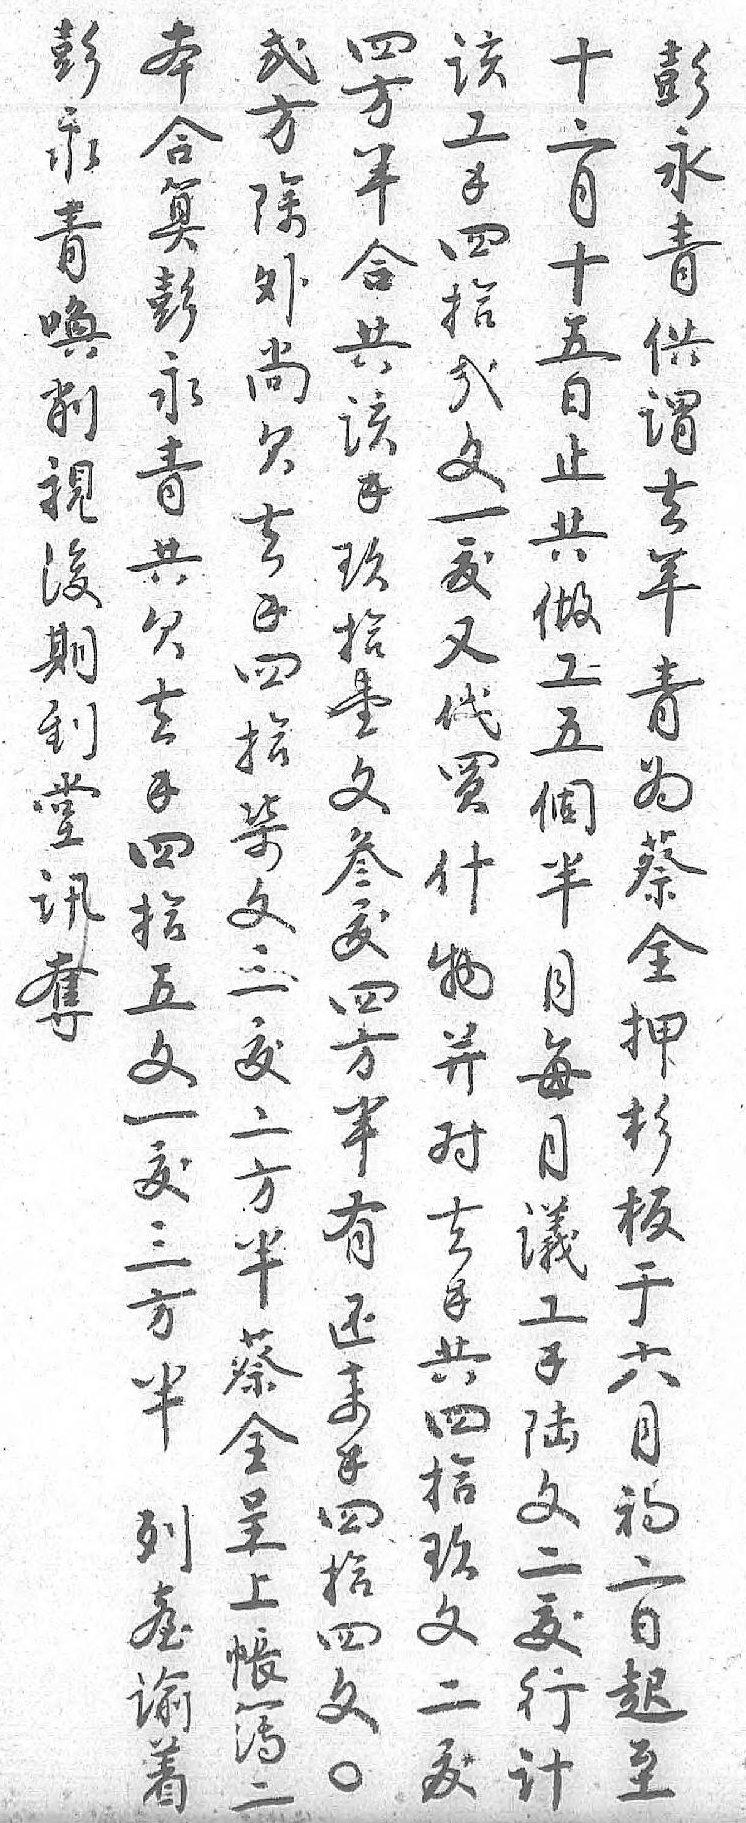 彭永青供謂去年青为蔡全押杉板于六月初二日起至
十二月十五日止共做工五個半月每月議工𠂤陆文二友行計
该工𠂤四拾弍文一友又代買什物并对去𠂤共四拾玖文二友
四方半合共该𠂤玖拾壹文叁友四方半有还来𠂤四拾四文〇
弍方除外尚欠去𠂤四拾柒文三友二方半蔡全呈上帳簿二
本合算彭永青共欠去𠂤四拾五文一友三方半 列臺谕着
彭永青喚削視後期到堂訊奪